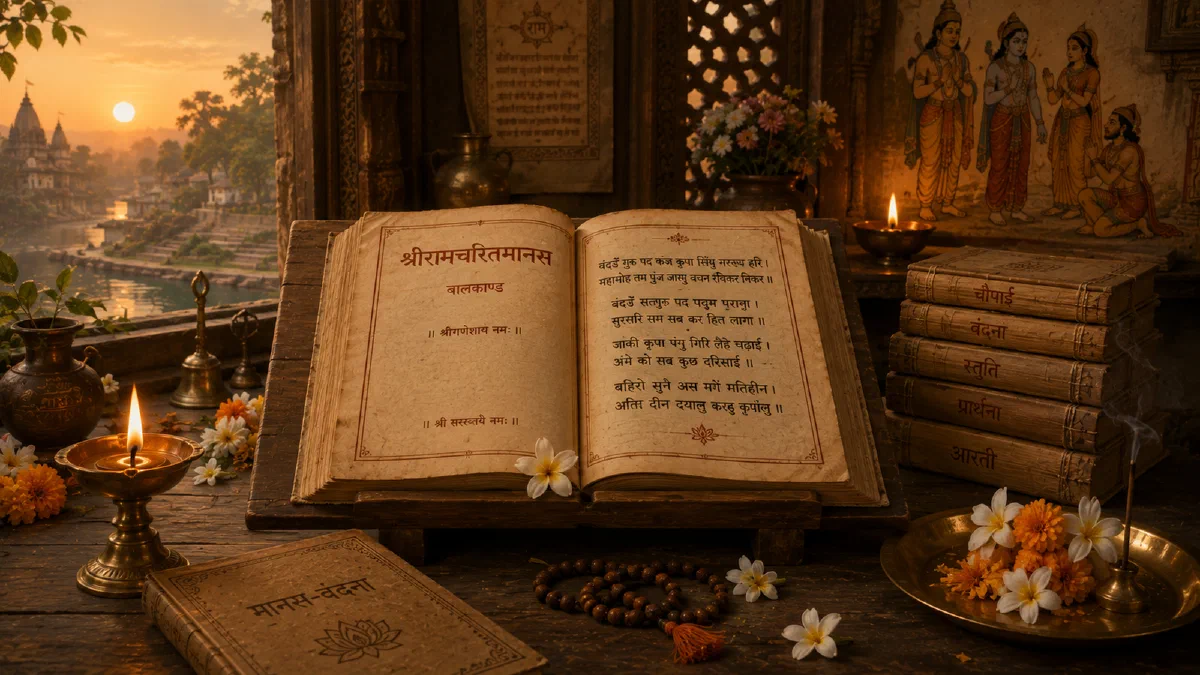 राम
श्रीरामचरितमानस
बालकाण्ड
॥ श्रीगणेशाय नमः ॥
॥ श्री सरस्वत्यै नमः ॥
वंदउँ गुरु पद कंज कृपा सिंधु नररूप हरि ।
महामोह तम पुंज जासु वचन रविकर निकर ॥
वंदउँ सतगुरु पद पदुम परागा ।
सुरसरि सम सब कर हित लागा ॥
जाकी कृपा पंगु गिरि लैहे चढ़ाई ।
अंमे को सब कुछ दरिसाई ॥
बहिरो सुनै अस मगें मतिहीन ।
अतिस दीन दयालु करहु कृपालु ॥
चौपाई
वंदना
स्तुति
प्रार्थना
आरती
मानस-वंदना